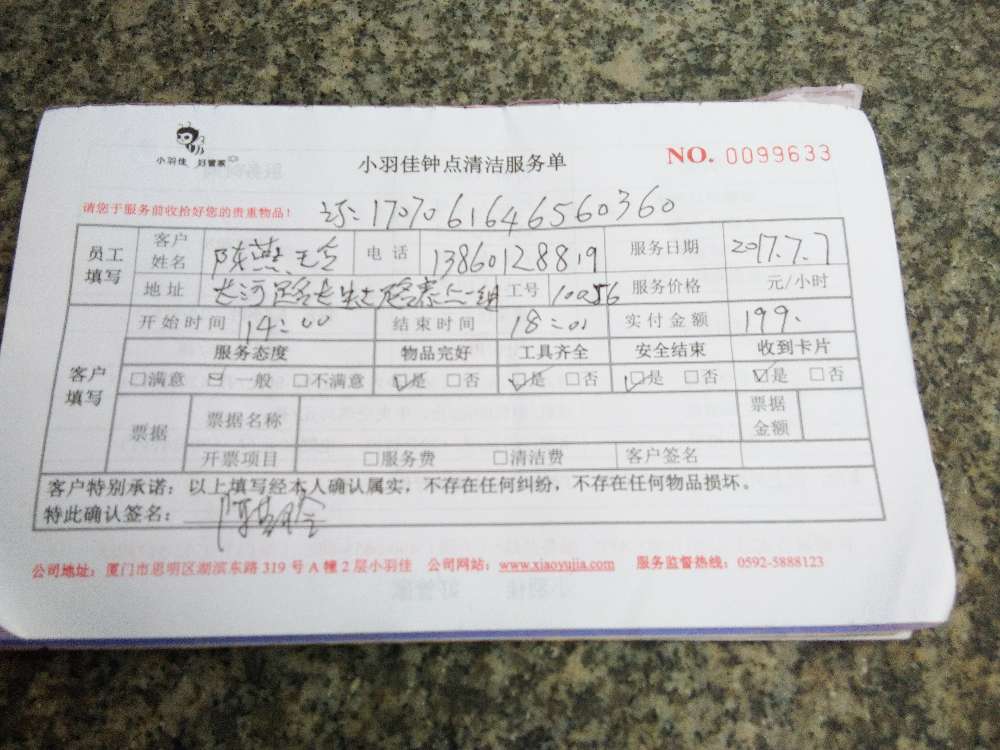 小羽佳 好管家
小羽佳钟点清洁服务单
NO. 0099633
请您于服务前收拾好您的贵重物品!
1707061646560360
员工填写 客户姓名 陈燕玲 电话 13860128819 服务日期 2017.7.7
地址 长河路 工号 10056 服务价格 元/小时
客户填写 开始时间 14:00 结束时间 18:01 实付金额 199.
服务态度 物品完好 工具齐全 安全结束 收到卡片
□满意 ☑一般 □不满意 ☑是 □否 ☑是 □否 ☑是 □否 ☑是 □否
票据 票据名称 票据金额
开票项目 □服务费 □清洁费 客户签名
客户特别承诺:以上填写经本人确认属实,不存在任何纠纷,不存在任何物品损坏。
特此确认签名:
公司地址:厦门市思明区湖滨东路 319 号 A 幢 2 层小羽佳 公司网站:www.xiaoyujia.com 服务监督热线:0592-5888123